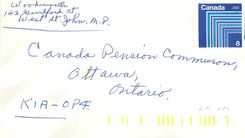 Woodworth
143 Guilford St
West St. John, N.B.
CANADA
8
Canada Pension Commission,
Ottawa,
Ontario.
K1A-0P4